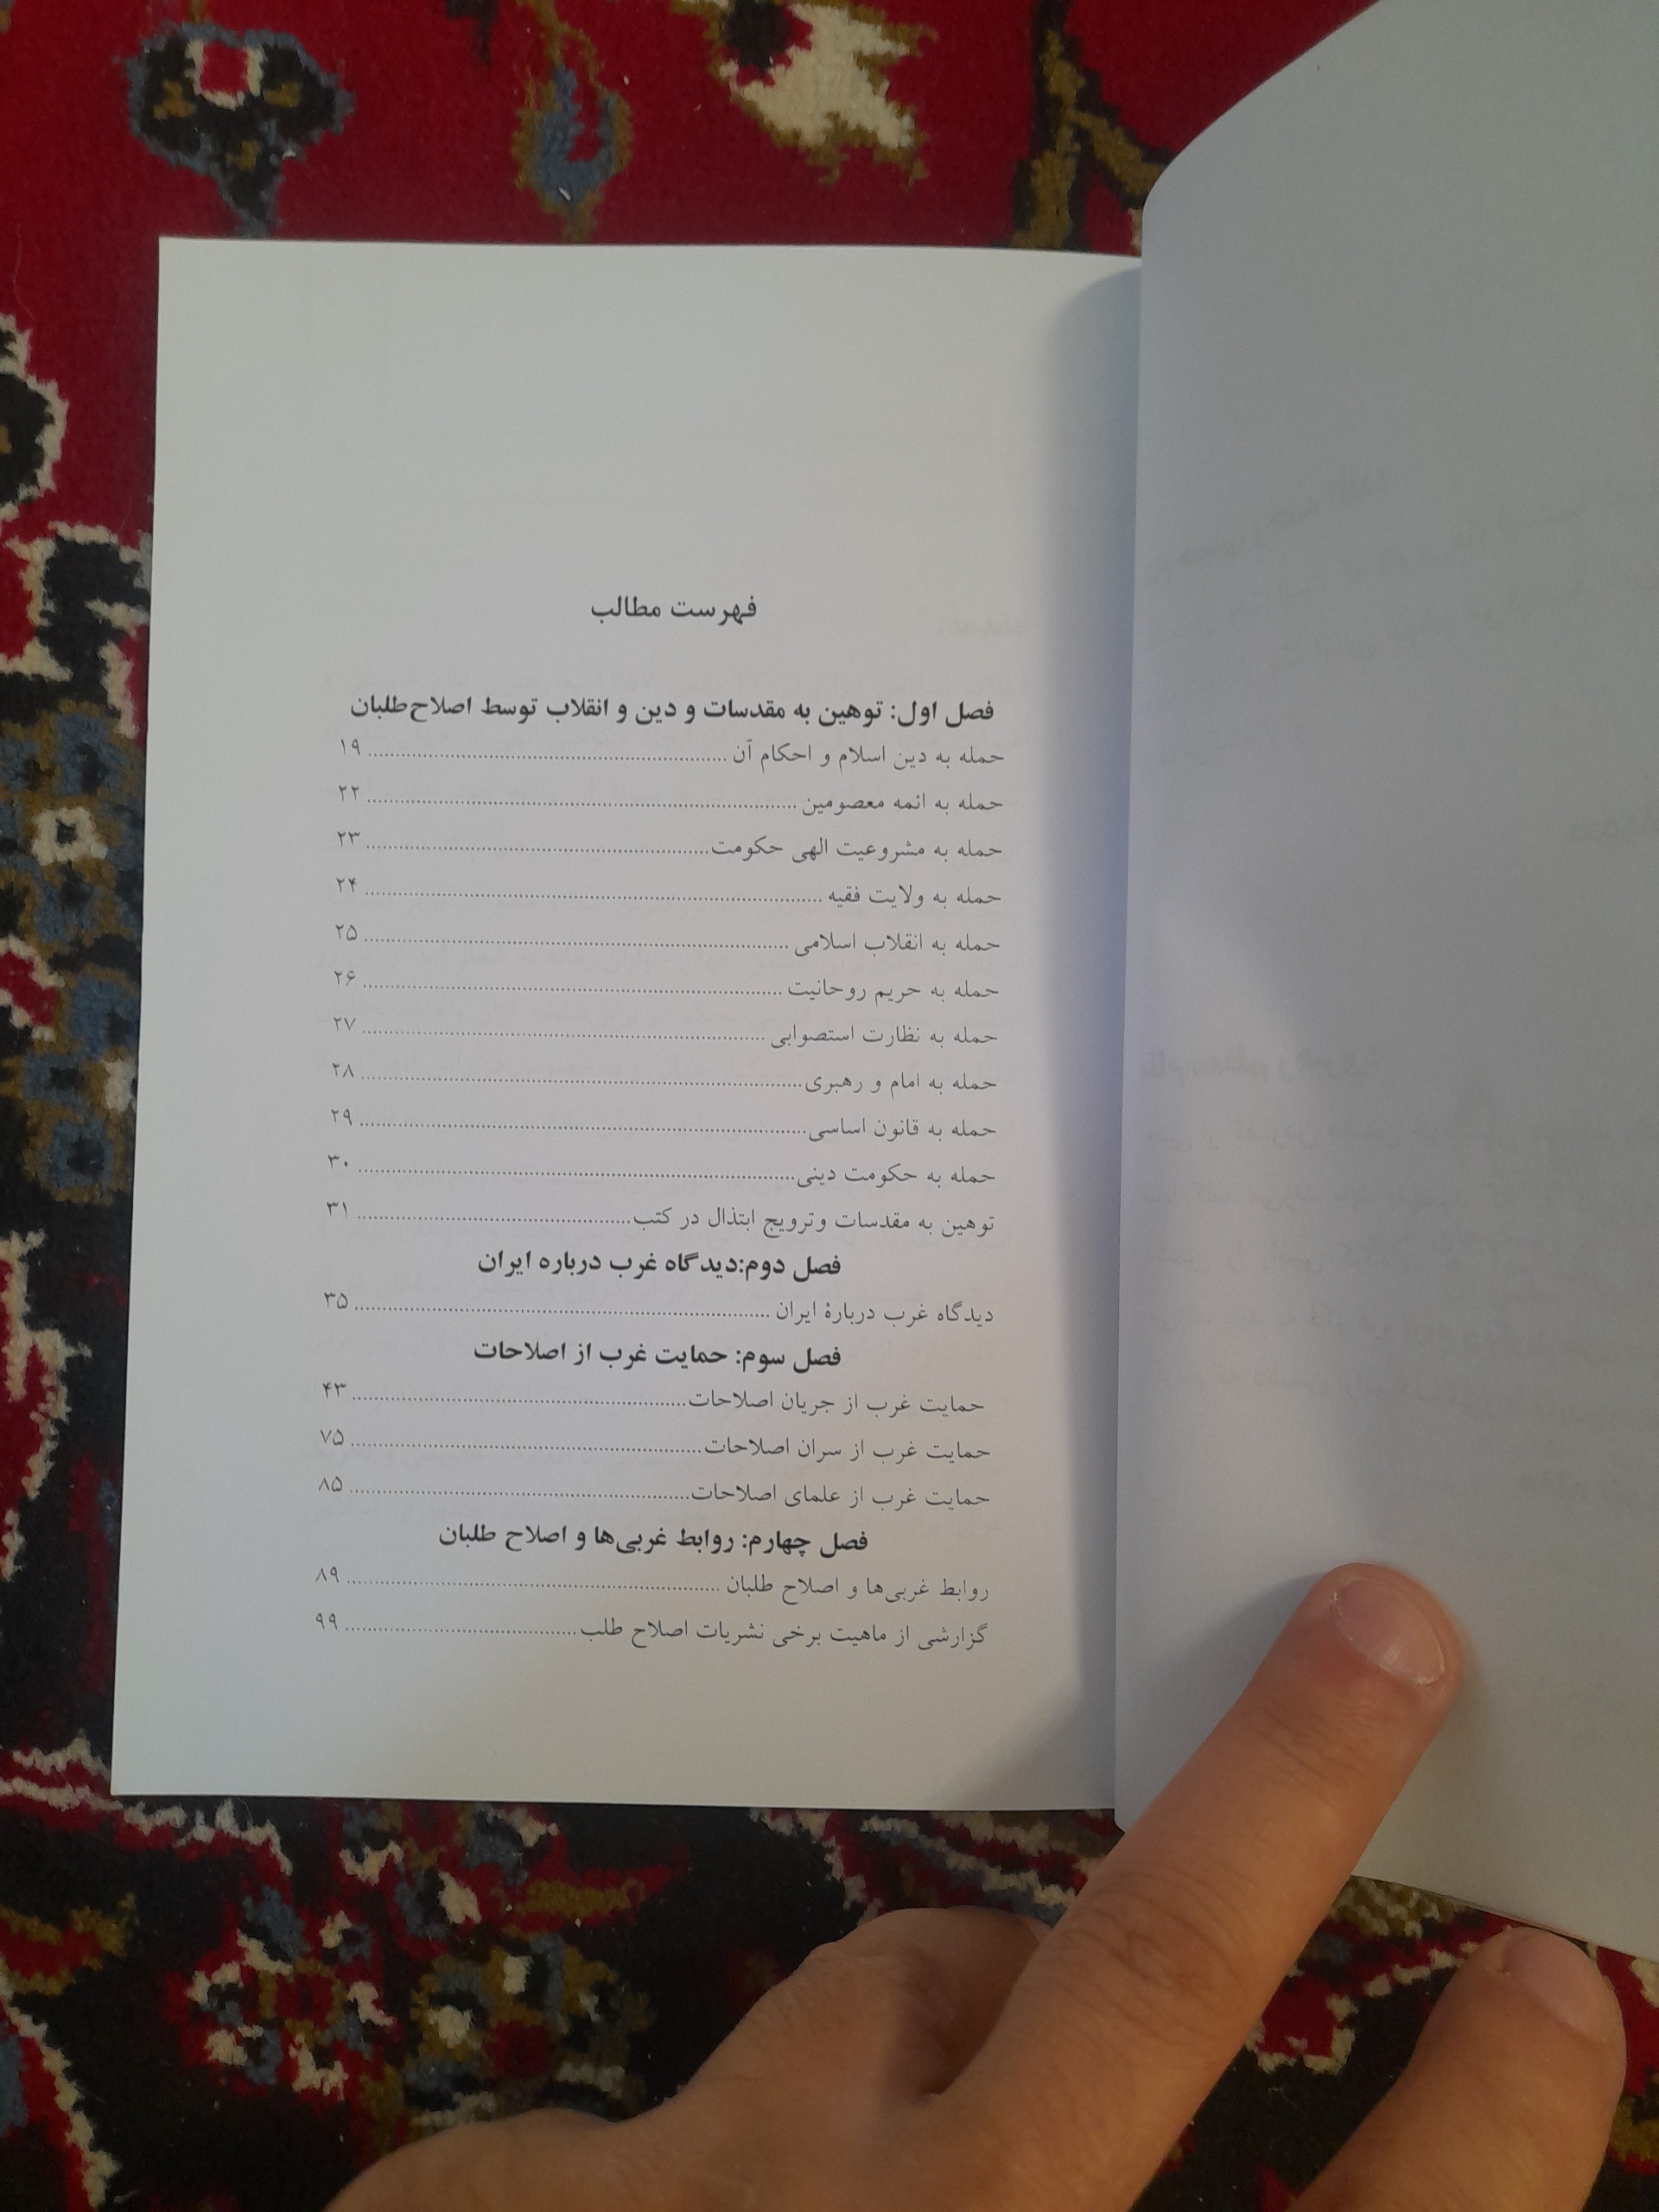 فهرست مطالب
فصل اول: توهین به مقدسات و دین و انقلاب توسط اصلاح‌طلبان
حمله به دین اسلام و احکام آن ۱۹
حمله به ائمه معصومین ۲۲
حمله به مشروعیت الهی حکومت ۲۳
حمله به ولایت فقیه ۲۴
حمله به انقلاب اسلامی ۲۵
حمله به حریم روحانیت ۲۶
حمله به نظارت استصوابی ۲۷
حمله به امام و رهبری ۲۸
حمله به قانون اساسی ۲۹
حمله به حکومت دینی ۳۰
توهین به مقدسات وترویج ابتذال در کتب ۳۱
فصل دوم:دیدگاه غرب درباره ایران
دیدگاه غرب دربارۀ ایران ۳۵
فصل سوم: حمایت غرب از اصلاحات
حمایت غرب از جریان اصلاحات ۴۳
حمایت غرب از سران اصلاحات ۷۵
حمایت غرب از علمای اصلاحات ۸۵
فصل چهارم: روابط غربی‌ها و اصلاح طلبان
روابط غربی‌ها و اصلاح طلبان ۸۹
گزارشی از ماهیت برخی نشریات اصلاح طلب ۹۹